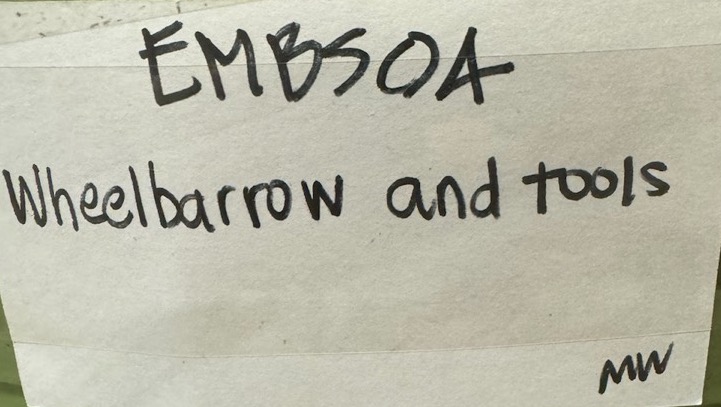 EMBSOA
Wheelbarrow and tools
MW